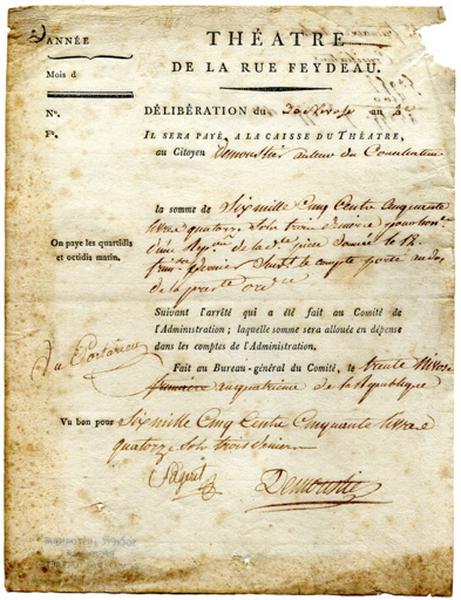 ANNÉE
Mois d
N°.
F°.
THÉATRE
DE LA RUE FEYDEAU.
DÉLIBÉRATION du 30 Nivose an 4e
IL SERA PAYÉ, A LA CAISSE DU THÉATRE,
au Citoyen Demoustier auteur du Conciliateur
la somme de Six mille Cinq Cents Cinquante
livres quatorze sols trois deniers pour
d'une de la dte pièce donnée le 12
frimre dernier suivt le compte porté au dos
de la présente ordce
On paye les quartidis
et octidis matin.
Suivant l'arrêté qui a été fait au Comité de
l'Administration ; laquelle somme sera allouée en dépense
dans les comptes de l'Administration.
Fait au Bureau-général du Comité, le trente Nivose
frimaire an quatrieme de la République
Vu bon pour Six mille Cinq Cents Cinquante livres
quatorze sols trois deniers
Sageret
Demoustier